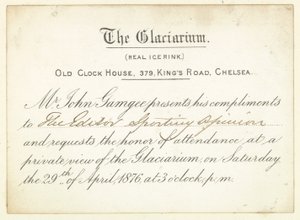 The Glaciarium.
(REAL ICE RINK)
OLD CLOCK HOUSE, 379, KING'S ROAD, CHELSEA.
Mr. John Gamgee presents his compliments
to The Editor Sporting Opinion
and requests the honor of attendance at a
private view of the Glaciarium, on Saturday
the 29th of April, 1876, at 3 o'clock, p.m.